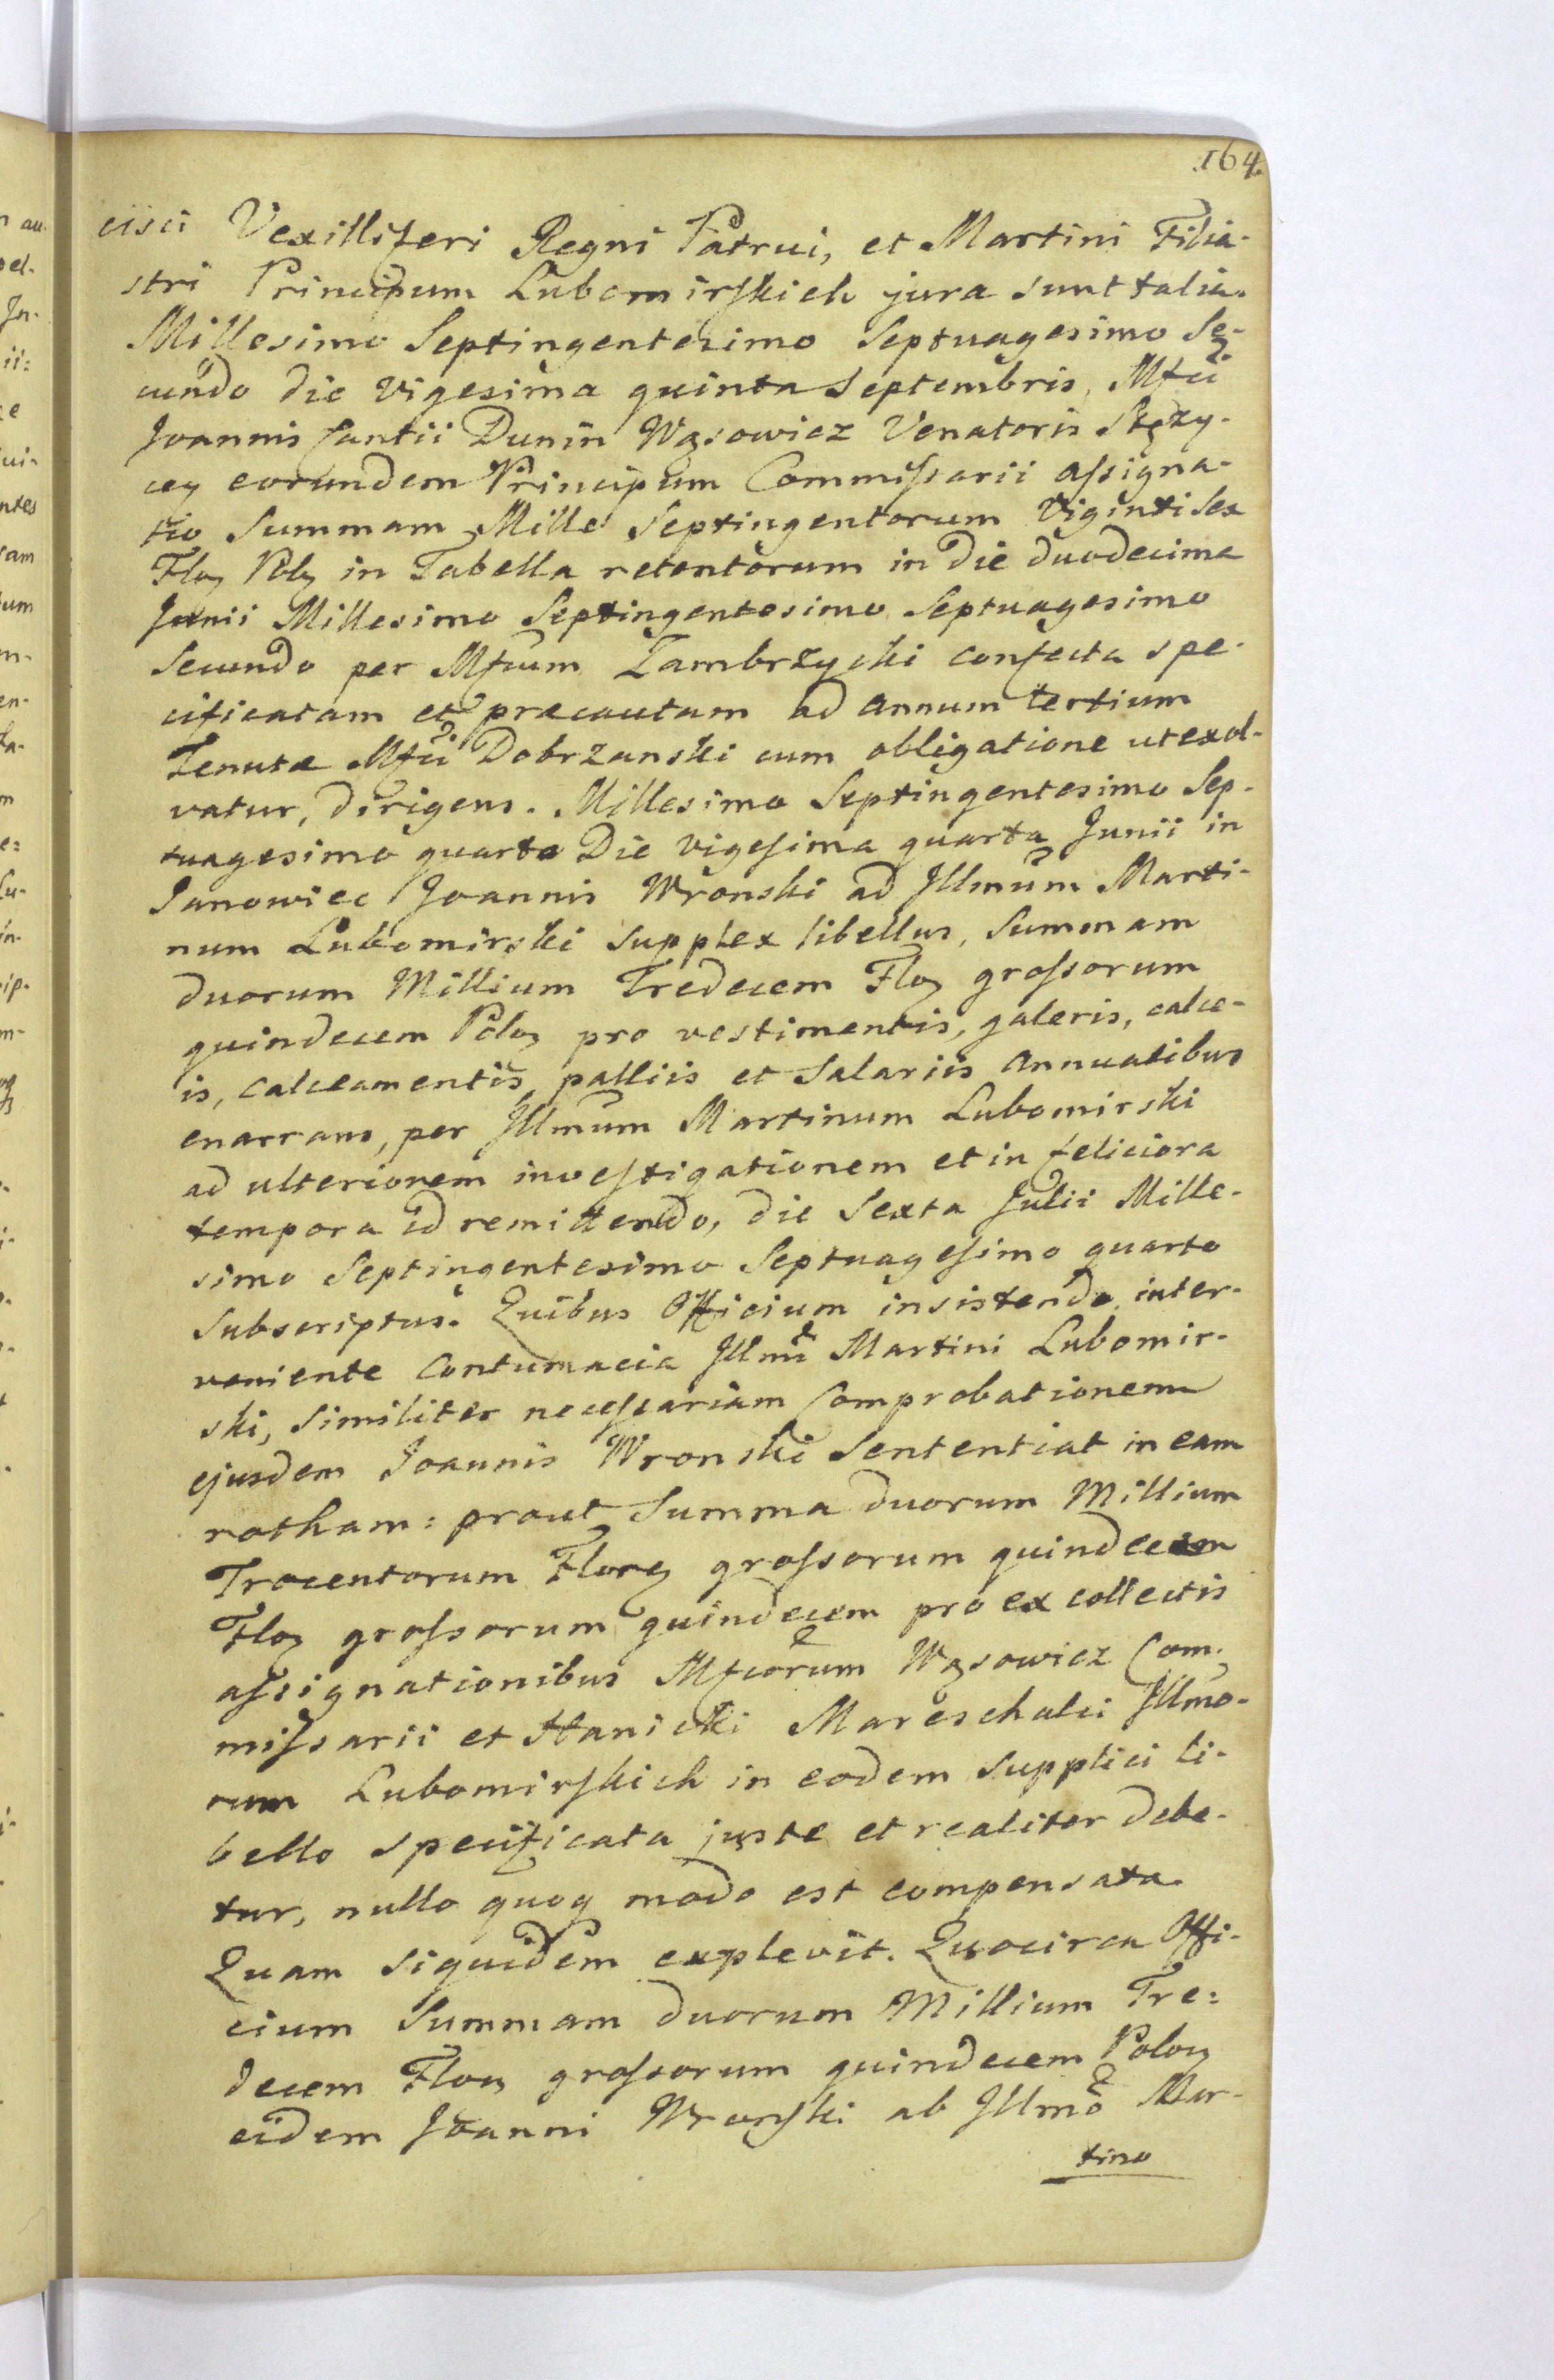 164.
cisci Vexilliferi Regni Patrui, et Martini Filia-
stri Principum Lubomirskich jura sunt talia.
Millesimo Septingentesimo Septuagesimo Se-
cundo die vigesima quinta Septembris, Mfci
Joannis Cantii Dunin Wąsowicz Venatoris Stęzy-
cen eorundem Principum Commissarii assigna-
tio Summam Mille Septingentorum Viginti Sex
Floꝝ Polꝝ in Tabella retentorum in Die duodecima
Junii Millesimo Septingentesimo Septuagesimo
Secundo per Mfcum Zambrzycki confecta spe-
cificatam et præcautam ad annum tertium
Tenutæ Mfci Dobrzanski cum obligatione ut exol-
vatur, dirigens. Millesimo Septingentesimo Sep-
tuagesimo quarto Die vigesima quarta Junii in
Janowiec Joannis Wronski ad Illmum Marti-
num Lubomirski supplex libellus, Summam
duorum Millium Tredecem Floꝝ grossorum
quindecem Poloꝝ pro vestimentis, galeris, calce-
is, calceamentis, palliis et Salariis annualibus
enarrans, per Illmum Martinum Lubomirski
ad ulteriorem investigationem et in feliciora
tempora id remittendo, die Sexta Julii Mille-
simo Septingentesimo Septuagesimo quarto
Subscriptus. Quibus Officium insistendo inter-
veniente Contumacia Illmi Martini Lubomir-
ski, Similiter necessariam Comprobationem
ejusdem Joannis Wronski Sententiat in eam
rotham: prout Summa duorum Millium
Trecentorum Floreꝝ grossorum quindecem
Floꝝ grossorum quindecem pro ex collectis
assignationibus Mfcorum Wąsowicz Com-
missarii et Hanicki Mareschalci Illmo-
rum Lubomirskich in eodem supplici li-
bello specificata juste et realiter debe-
tur, nullo quoq modo est compensata.
Quam siquidem explevit. Quocirca Offi-
cium Summam duorum Millium Tre:
decem Floꝝ grossorum quindecem Poloꝝ
eidem Joanni Wronski ab Illmo Mar-
tino